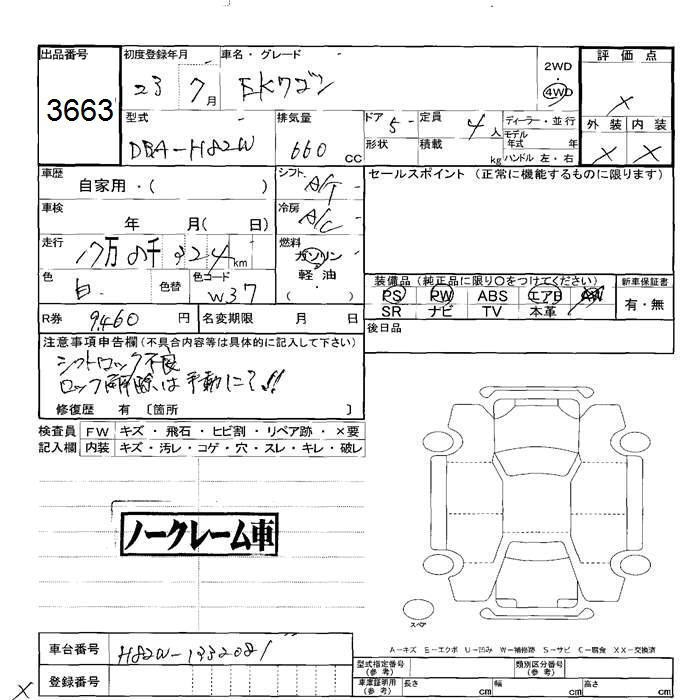 出品番号
3663
初度登録年月
23 7月
車名・グレード
EKワゴン
2WD
4WD
評価点
×
外装 内装
× ×
型式
DBA-H82W
排気量
660 CC
ドア 5
定員 4人
ディーラー・並行
形状
積載 kg
モデル年式 年
ハンドル 左・右
車歴
自家用・( )
シフト A/T
車検
年 月( 日)
冷房 A/C
走行
km
燃料
ガソリン
軽油
( )
色
白
色替
色コード
W37
R券 9,460円
名変期限 月 日
セールスポイント (正常に機能するものに限ります)
装備品(純正品に限り○をつけてください)
PS PW ABS エアB AW
SR ナビ TV 本革
新車保証書
有・無
後日品
注意事項申告欄(不具合内容等は具体的に記入して下さい)
シフトロック不良
ロック解除は手動にて!!
修復歴 有 〔箇所 〕
検査員 FW キズ・飛石・ヒビ割・リペア跡・×要
記入欄 内装 キズ・汚レ・コゲ・穴・スレ・キレ・破レ
ノークレーム車
スペア
A-キズ E-エクボ U-凹み W-補修跡 S-サビ C-腐食 XX-交換済
車台番号 H82W-1332081
登録番号
型式指定番号(参考)
類別区分番号(参考)
車庫証明用(参考) 長さ cm 幅 cm 高さ cm
×